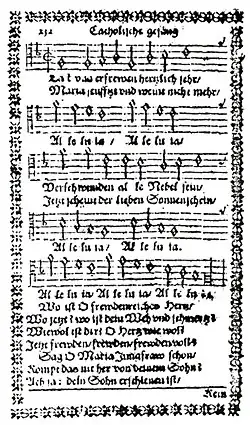 232 Catholische gesäng
Last vns erfrewen hertzlich sehr/
Maria seufftzt vnd weint nicht mehr/
Al le lu ia / Al le lu ia.
Verschwunden al le Nebel sein/
Jetzt scheint der lieben Sonnenschein/
Al le lu ia / Al le lu ia.
Al le lu ia / Al le lu ia / Al le lu ia.
Wo ist O frewdenreiches Hertz/
Wo jetzt wo ist dein Weh vnd schmertz?
Wie wol ist dir O Hertz wie wol
Jetzt frewden/frewden/frewdenvoll?
Sag O Maria Jungfraw schon/
Kompt das nit her von deinem Sohn?
Ach ja: dein Sohn erschienen ist/
Kein